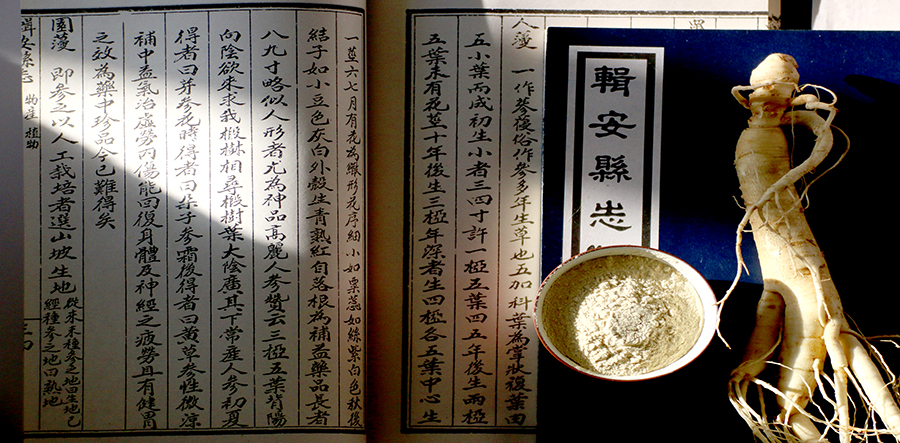 輯安縣志
人薓 一作葠俗作參多年生草也五加科葉為掌狀複葉由
五小葉而成初生小者三四寸許一椏五葉四五年後生兩椏
五葉未有花莖十年後生三椏年深者生四椏各五葉中心生
一莖六七月有花為繖形花序細小如粟蕊如絲紫白色秋後
結子如小豆色灰白外殼生青熟紅自落根為補益藥品長者
八九寸略似人形者尤為神品高麗人參贊云三椏五葉背陽
向陰欲來求我椵樹相尋椵樹葉大陰廣其下常產人參初夏
得者曰芽參花時得者曰朵子參霜後得者曰黃草參性微涼
補中益氣治虛勞內傷能回復身體及神經之疲勞且有健胃
之效為藥中珍品今已難得矣
園薓 即參之以人工栽培者選山坡生地
從來未種參之地曰生地已
經種參之地曰熟地
輯安縣志 物產 植物